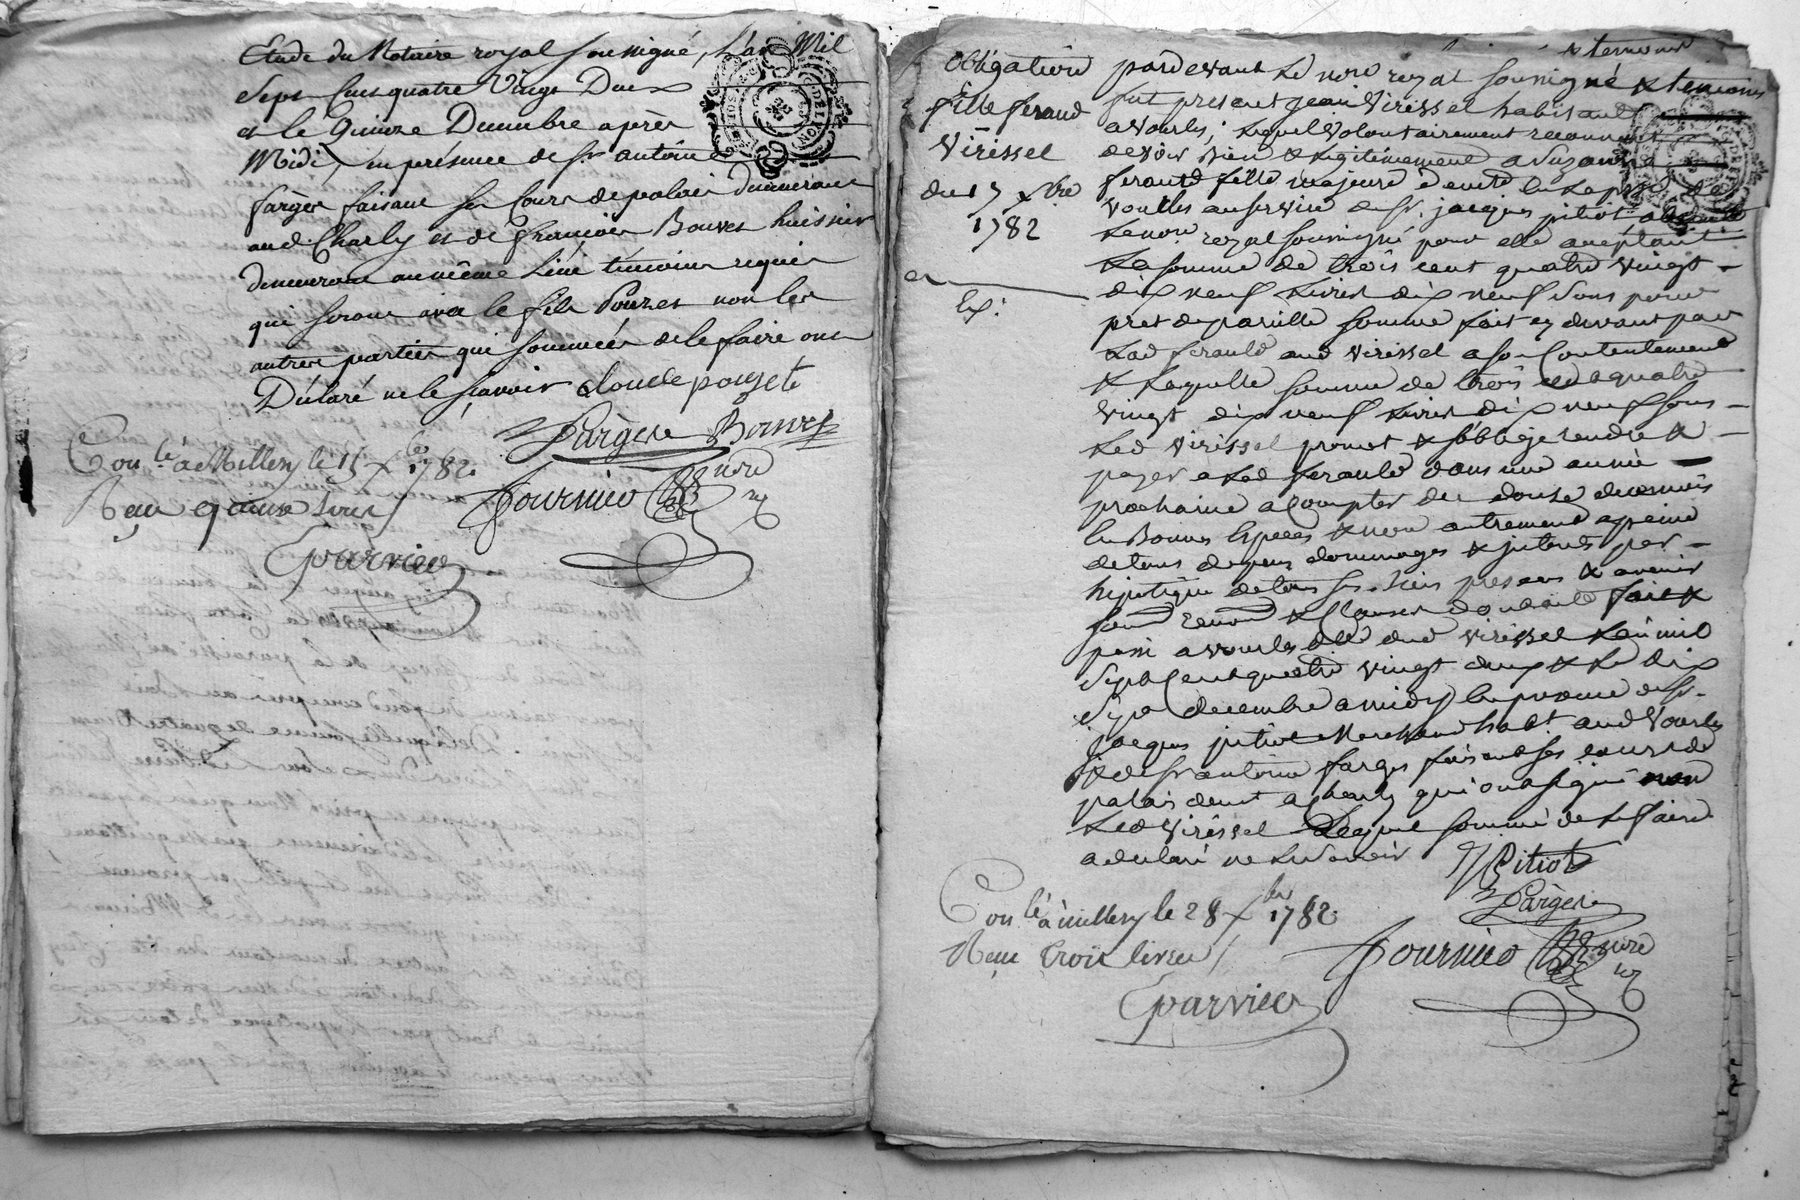 Etude du Notaire royal soussigné, L'an Mil
Sept Cent quatre Vingt Deux
et le Quinze Decembre après
Midi, en présence de Sr antoine
farges faisant ses Cours de palais demeurant
aud Charly et de francois Bouvet huissier
demeurant au même Lieu témoins requis
qui seront avec le fils Pouzet non les
autres parties qui sommées de le faire ont
Déclaré ne le sçavoir Cloude pouzet
fargese Bouvet
Con lé à Millery le 15 Xbre 1782.
Reçu quinze sous
fournier nore
Eparvier
Obligation
fille feraud
Viressel
du 17 xbre
1782
Ex.
& temoins
pardevant Le nore royal soussigné & temoins
fut present jean Viressel habitant
a Vourles, Lequel Volontairement reconnoit
devoir bien & Legitimement a Suzanne
feraud fille majeure demte en La psse de
Vourles au service de Sr. jacques pitiot
Le nore royal soussigné pour elle aceptant
La somme de trois cent quatre vingt
dix neuf Livres dix neuf sous pour
pret de pareille somme fait cy devant par
Lad feraud aud Viressel a son Contentement
& Laquelle somme de trois cent quatre
vingt dix neuf Livres dix neuf sous
Led Viressel promet & s'oblige rendre &
payer a Lad feraud dans une année
prochaine a Compter du douze decembre
en Bonnes Especes & non autrement a peine
de tous depens dommages & interets par
hipotèque de tous ses biens presens & avenir
& Clauses fait &
passé a vourles dud Viressel L'an mil
Sept Cent quatre vingt deux & Le dix
Sept decembre a midy en presence de Sr.
jacques pitiot Marchand habt. aud Vourles
& de Sr antoine farges faisant ses cours de
palais demt a charly qui ont signé non
Led Viressel Lequel sommé de Le faire
a declaré ne Le Scavoir
Pitiot
fargese
Con lé à Millery le 28 Xbre 1782.
Reçu trois livres
fournier nore
Eparvier